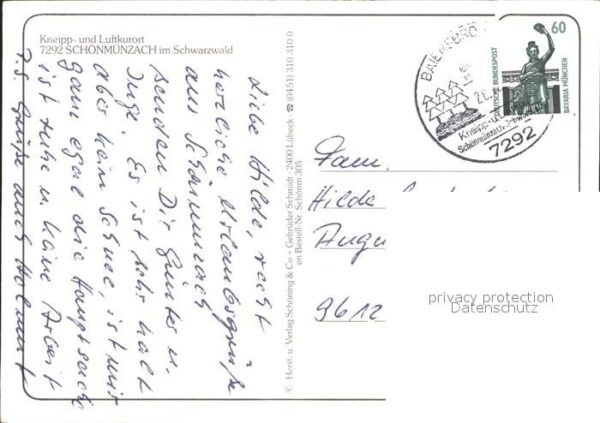 Kneipp- und Luftkurort
7292 SCHÖNMÜNZACH im Schwarzwald
Liebe Hilde, recht
herzliche Urlaubsgrüße
aus Schönmünzach
senden Dir Günter u.
Inge. Es ist sehr kalt
aber kein Schnee, ist mir
ganz egal die Hauptsache
ist Ruhe u. keine Arbeit
P.S. Grüße auch Helmut
© Herst. u. Verlag Schöning & Co · Gebrüder Schmidt · 2400 Lübeck ☎ (0451) 310 310 0
en Bestell-Nr. Schönm 305
BAIERSBRO
Kneipp-u.
Schönmünzach-Schwarz
7292
60
DEUTSCHE BUNDESPOST
BAVARIA MÜNCHEN
Fam.
Hilde
Augu
9612
privacy protection
Datenschutz